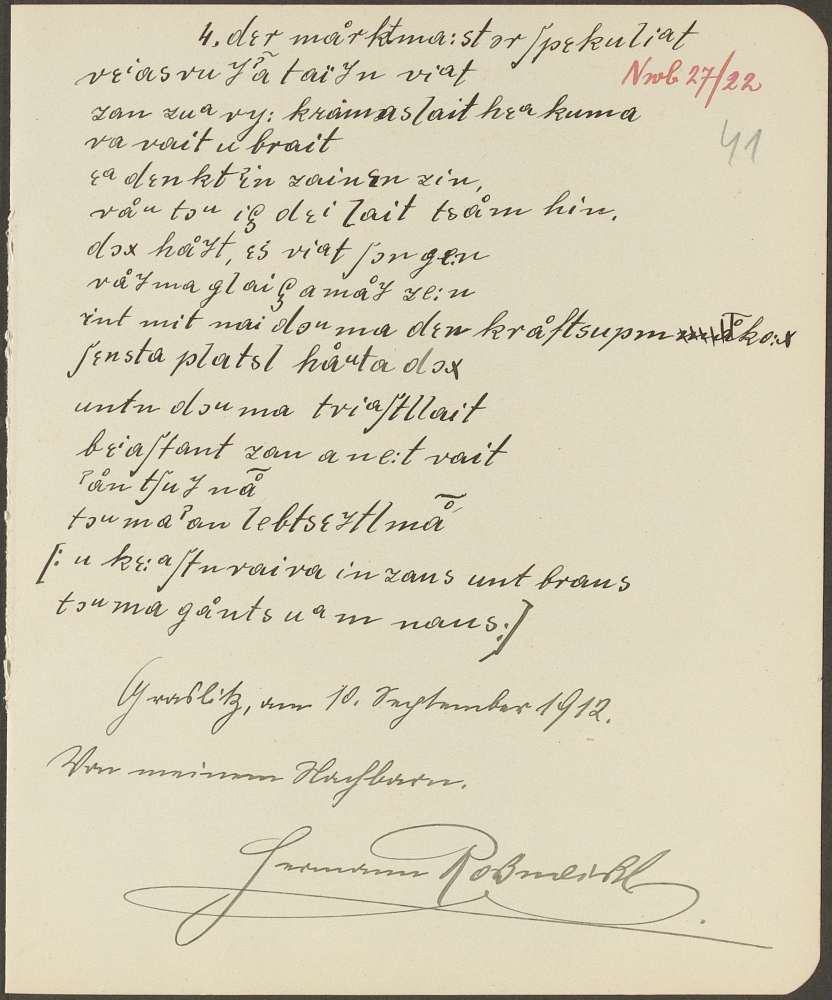 4. der mårktma:stɔr ʃpɛkuliat
vɛⁱasvu ʒˀã taïʒn viat
Nwb 27/22
zan zuᵃ vy: krämaslait hɛᵃ kuma
41
va vait u brait
ɛᵃ dɛnkt ˀin zainɛn zin,
våᵘ tɔᵘ iç dɛⁱ lait tsåm hin.
dɔx håʒt, ɛs viat ʃɔn ge:n
våʒ ma glaiç amåʒ ze:n
ˀint mit nai dɔᵘ ma den kråftsupm ko:x
ʃɛnsta platsl håᵘta dɔx
untn dɔᵘ ma triᵃʃtllait
bɛⁱaʃtant zan a ne:t vait
ˀån tʃuʒ nå̃
tɔᵘ ma ˀan lebtsɛʒtl må̃
[: u kɛ:ᵃʃtn vaiva in zaus unt braus
tɔᵘ ma gånts uᵃm naus:]
Graslitz, am 10. September 1912.
Von meinem Nachbarn.
Hermann Roßmeisl.